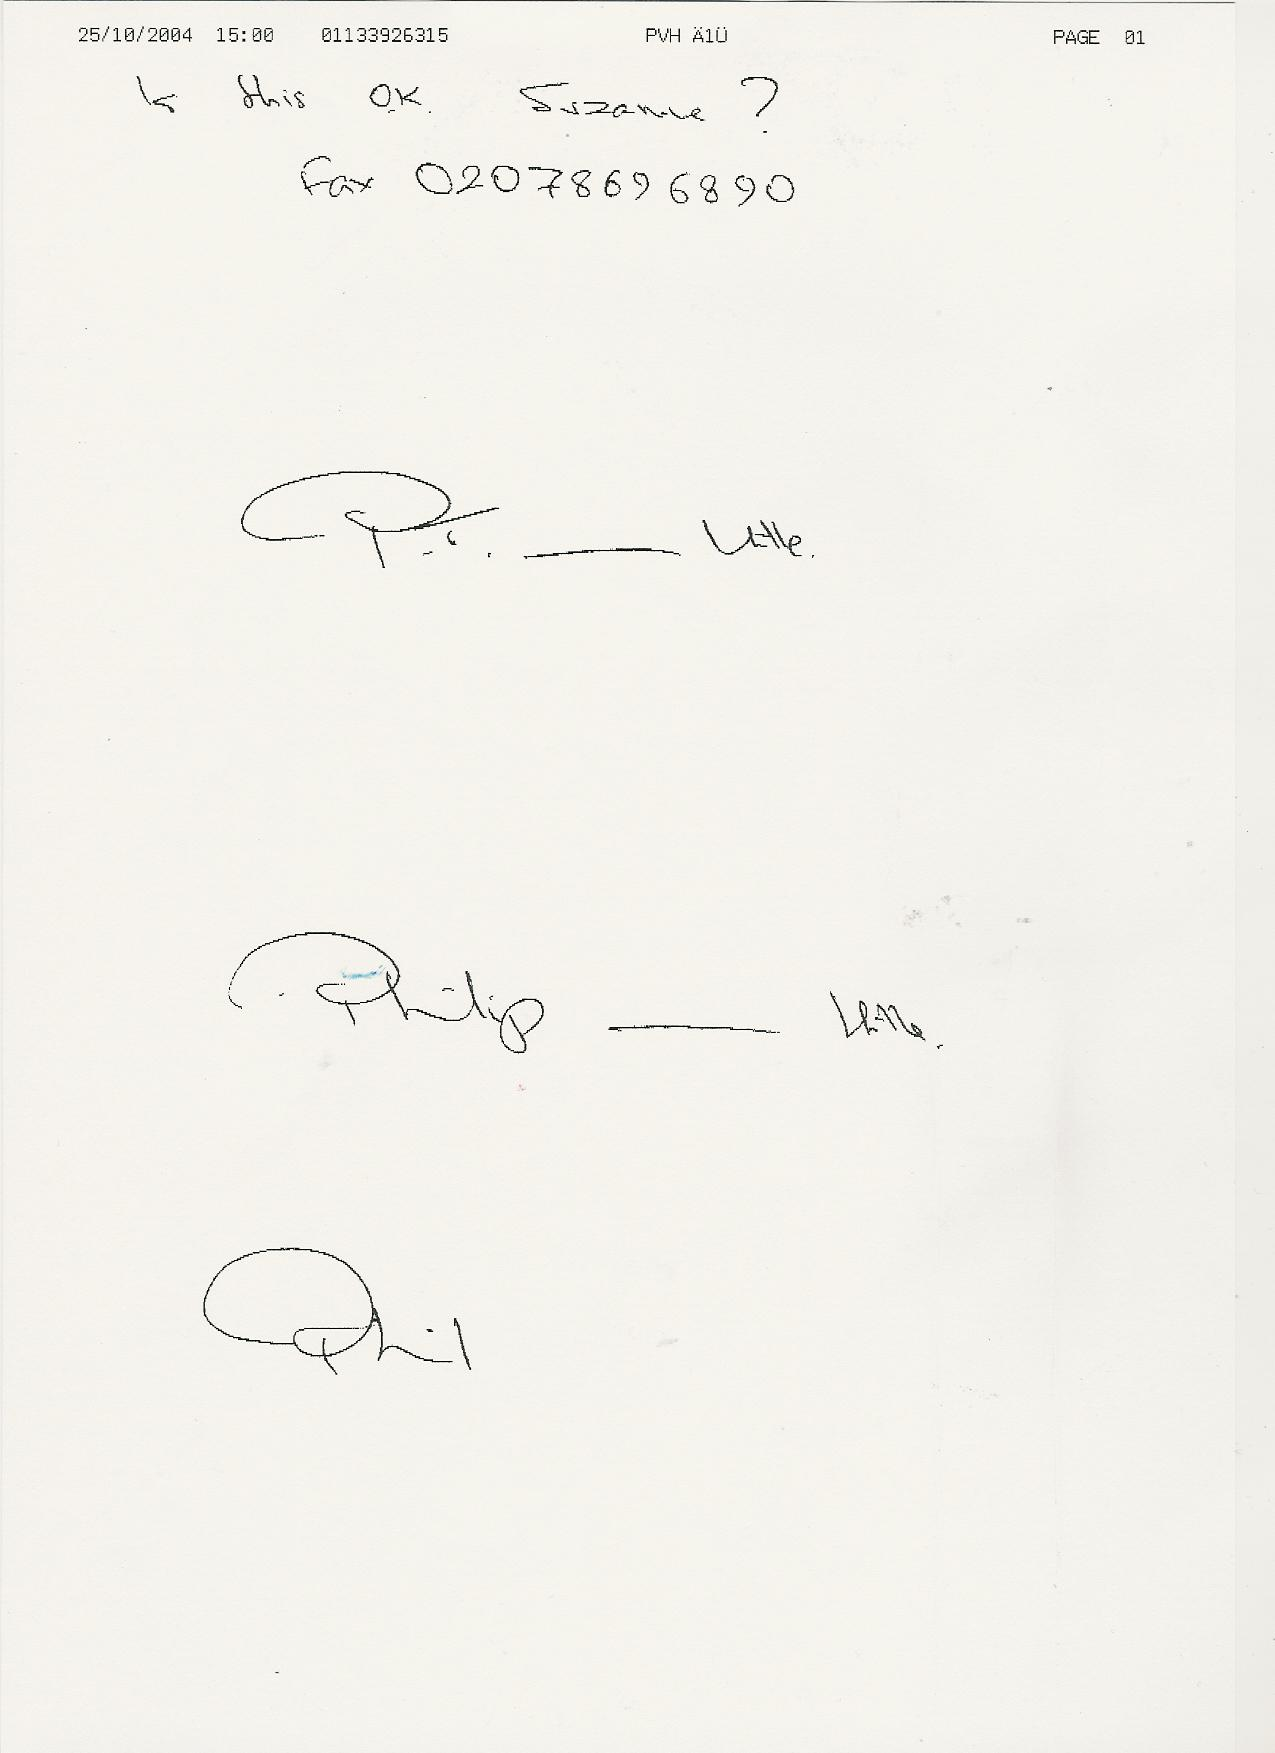 25/10/2004 15:00 01133926315 PVH Ä1Ü PAGE 01
Is this OK. Suzanne?
Fax 02078696890
Philip
Phil